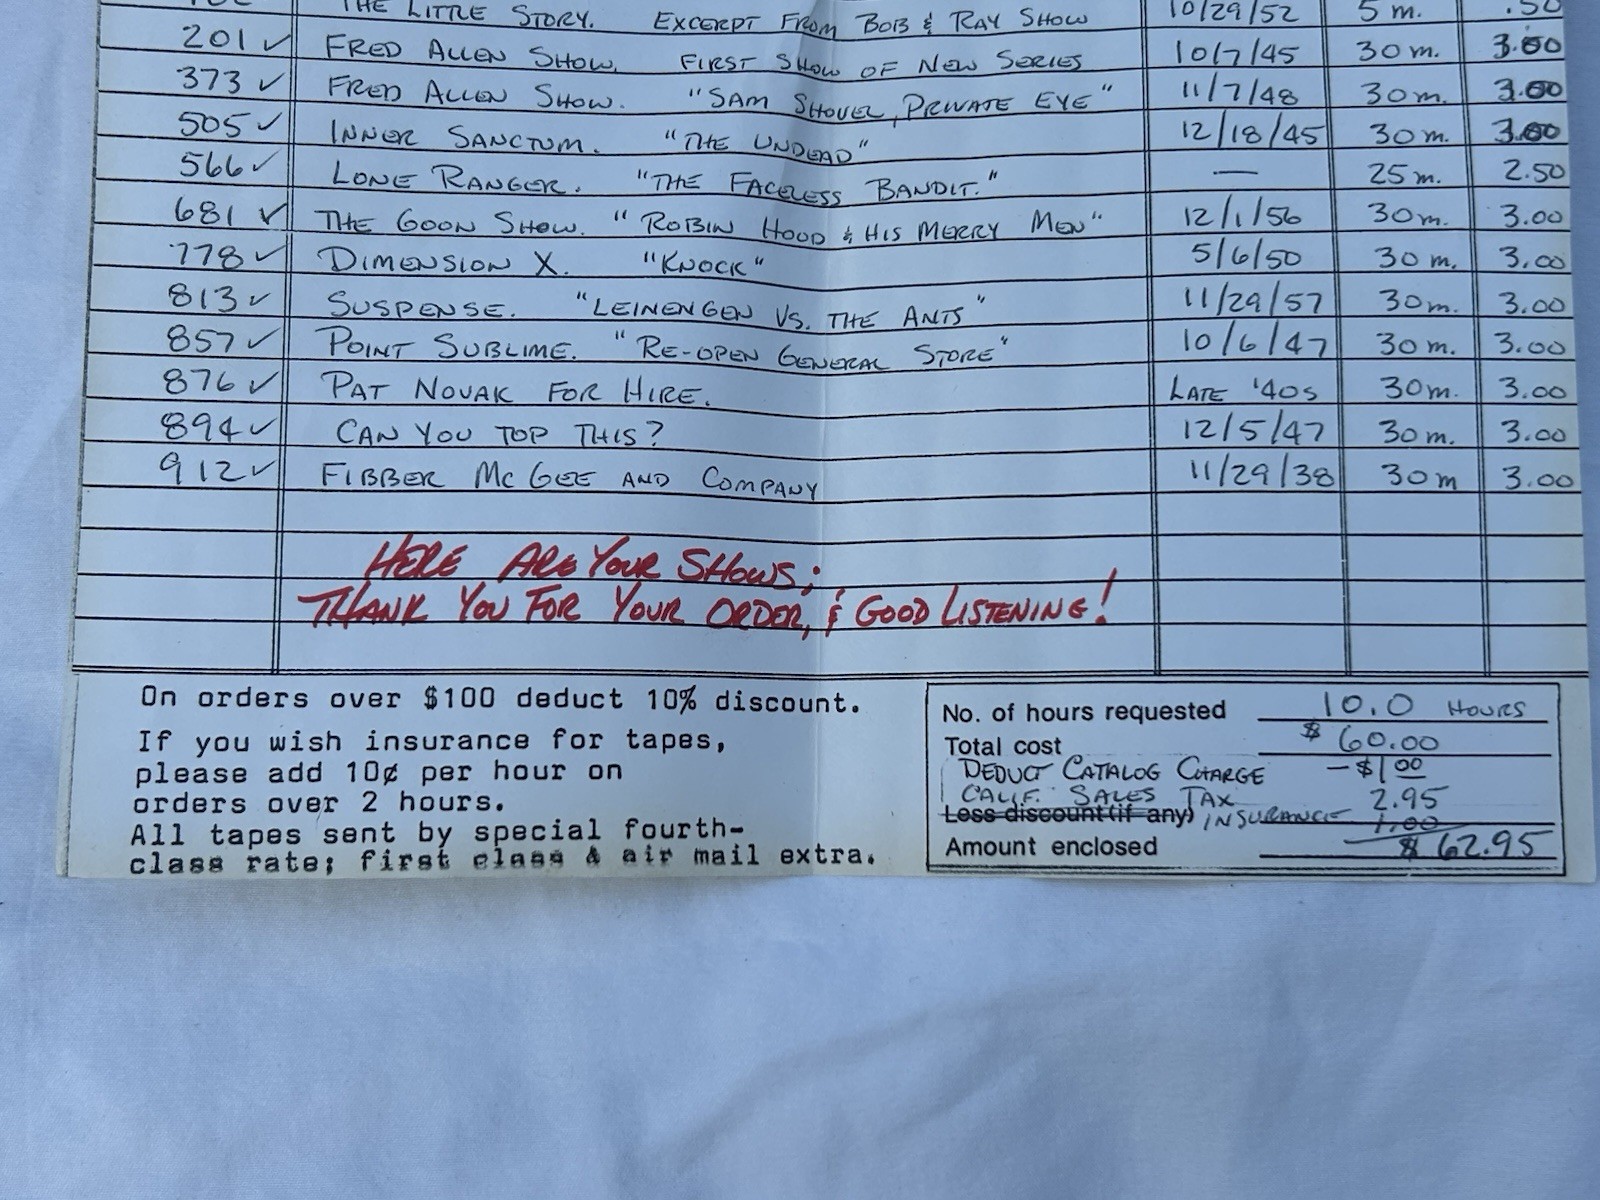 THE LITTLE STORY. EXCERPT FROM BOB & RAY SHOW 10/29/52 5 m. .50
201 ✓ FRED ALLEN SHOW. FIRST SHOW OF NEW SERIES 10/7/45 30 m. 3.00
373 ✓ FRED ALLEN SHOW. "SAM SHOVEL, PRIVATE EYE" 11/7/48 30 m. 3.00
505 ✓ INNER SANCTUM. "THE UNDEAD" 12/18/45 30 m. 3.00
566 ✓ LONE RANGER. "THE FACELESS BANDIT." — 25 m. 2.50
681 ✓ THE GOON SHOW. "ROBIN HOOD & HIS MERRY MEN" 12/1/56 30 m. 3.00
778 ✓ DIMENSION X. "KNOCK" 5/6/50 30 m. 3.00
813 ✓ SUSPENSE. "LEINENGEN VS. THE ANTS" 11/29/57 30 m. 3.00
857 ✓ POINT SUBLIME. "RE-OPEN GENERAL STORE" 10/6/47 30 m. 3.00
876 ✓ PAT NOVAK FOR HIRE. LATE '40s 30 m. 3.00
894 ✓ CAN YOU TOP THIS? 12/5/47 30 m. 3.00
912 ✓ FIBBER McGEE AND COMPANY 11/29/38 30 m 3.00
HERE ARE YOUR SHOWS;
THANK YOU FOR YOUR ORDER, & GOOD LISTENING!
On orders over $100 deduct 10% discount.
If you wish insurance for tapes,
please add 10¢ per hour on
orders over 2 hours.
All tapes sent by special fourth-
class rate; first class & air mail extra.
No. of hours requested 10.0 HOURS
Total cost $ 60.00
DEDUCT CATALOG CHARGE - $1.00
CALIF. SALES TAX 2.95
Less discount (if any) INSURANCE 1.00
Amount enclosed $ 62.95